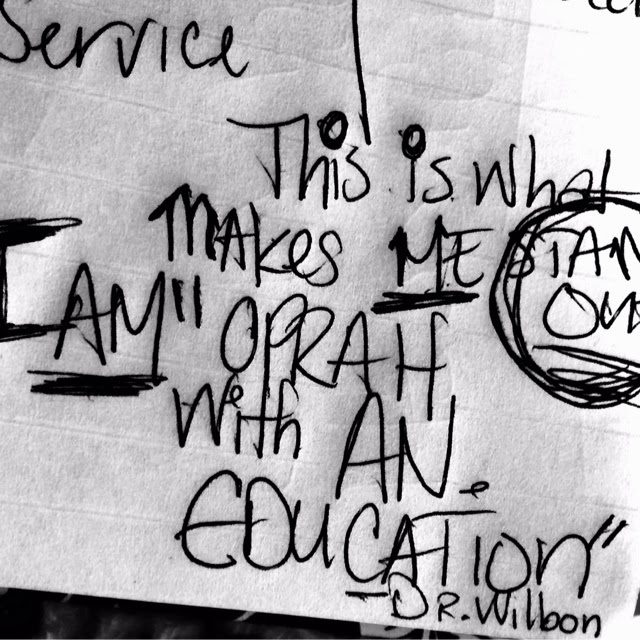 Service
This is what
MAKES ME STAN
I AM" OPRAH OU
With AN
EDUCATION"
DR. Willbon